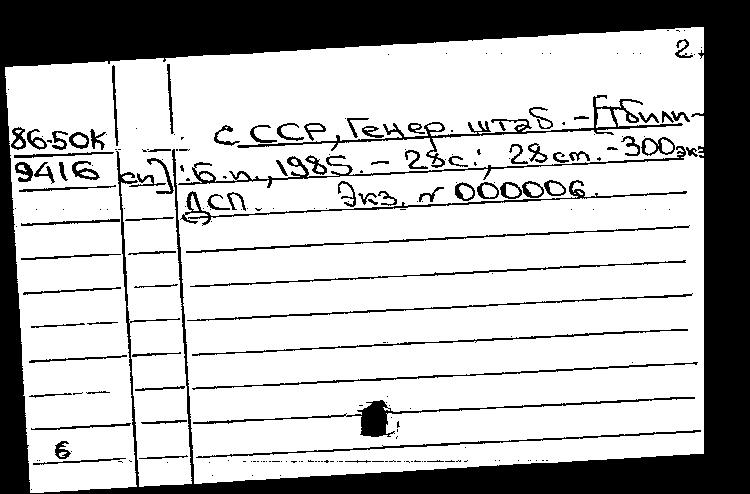 2.
86-50к С ССР, Генер. штаб. - [Тбили-
9416 си] : Б.п., 1985. - 28с.; 28см. - 300экз
ДСП. Экз. № 000006.
6